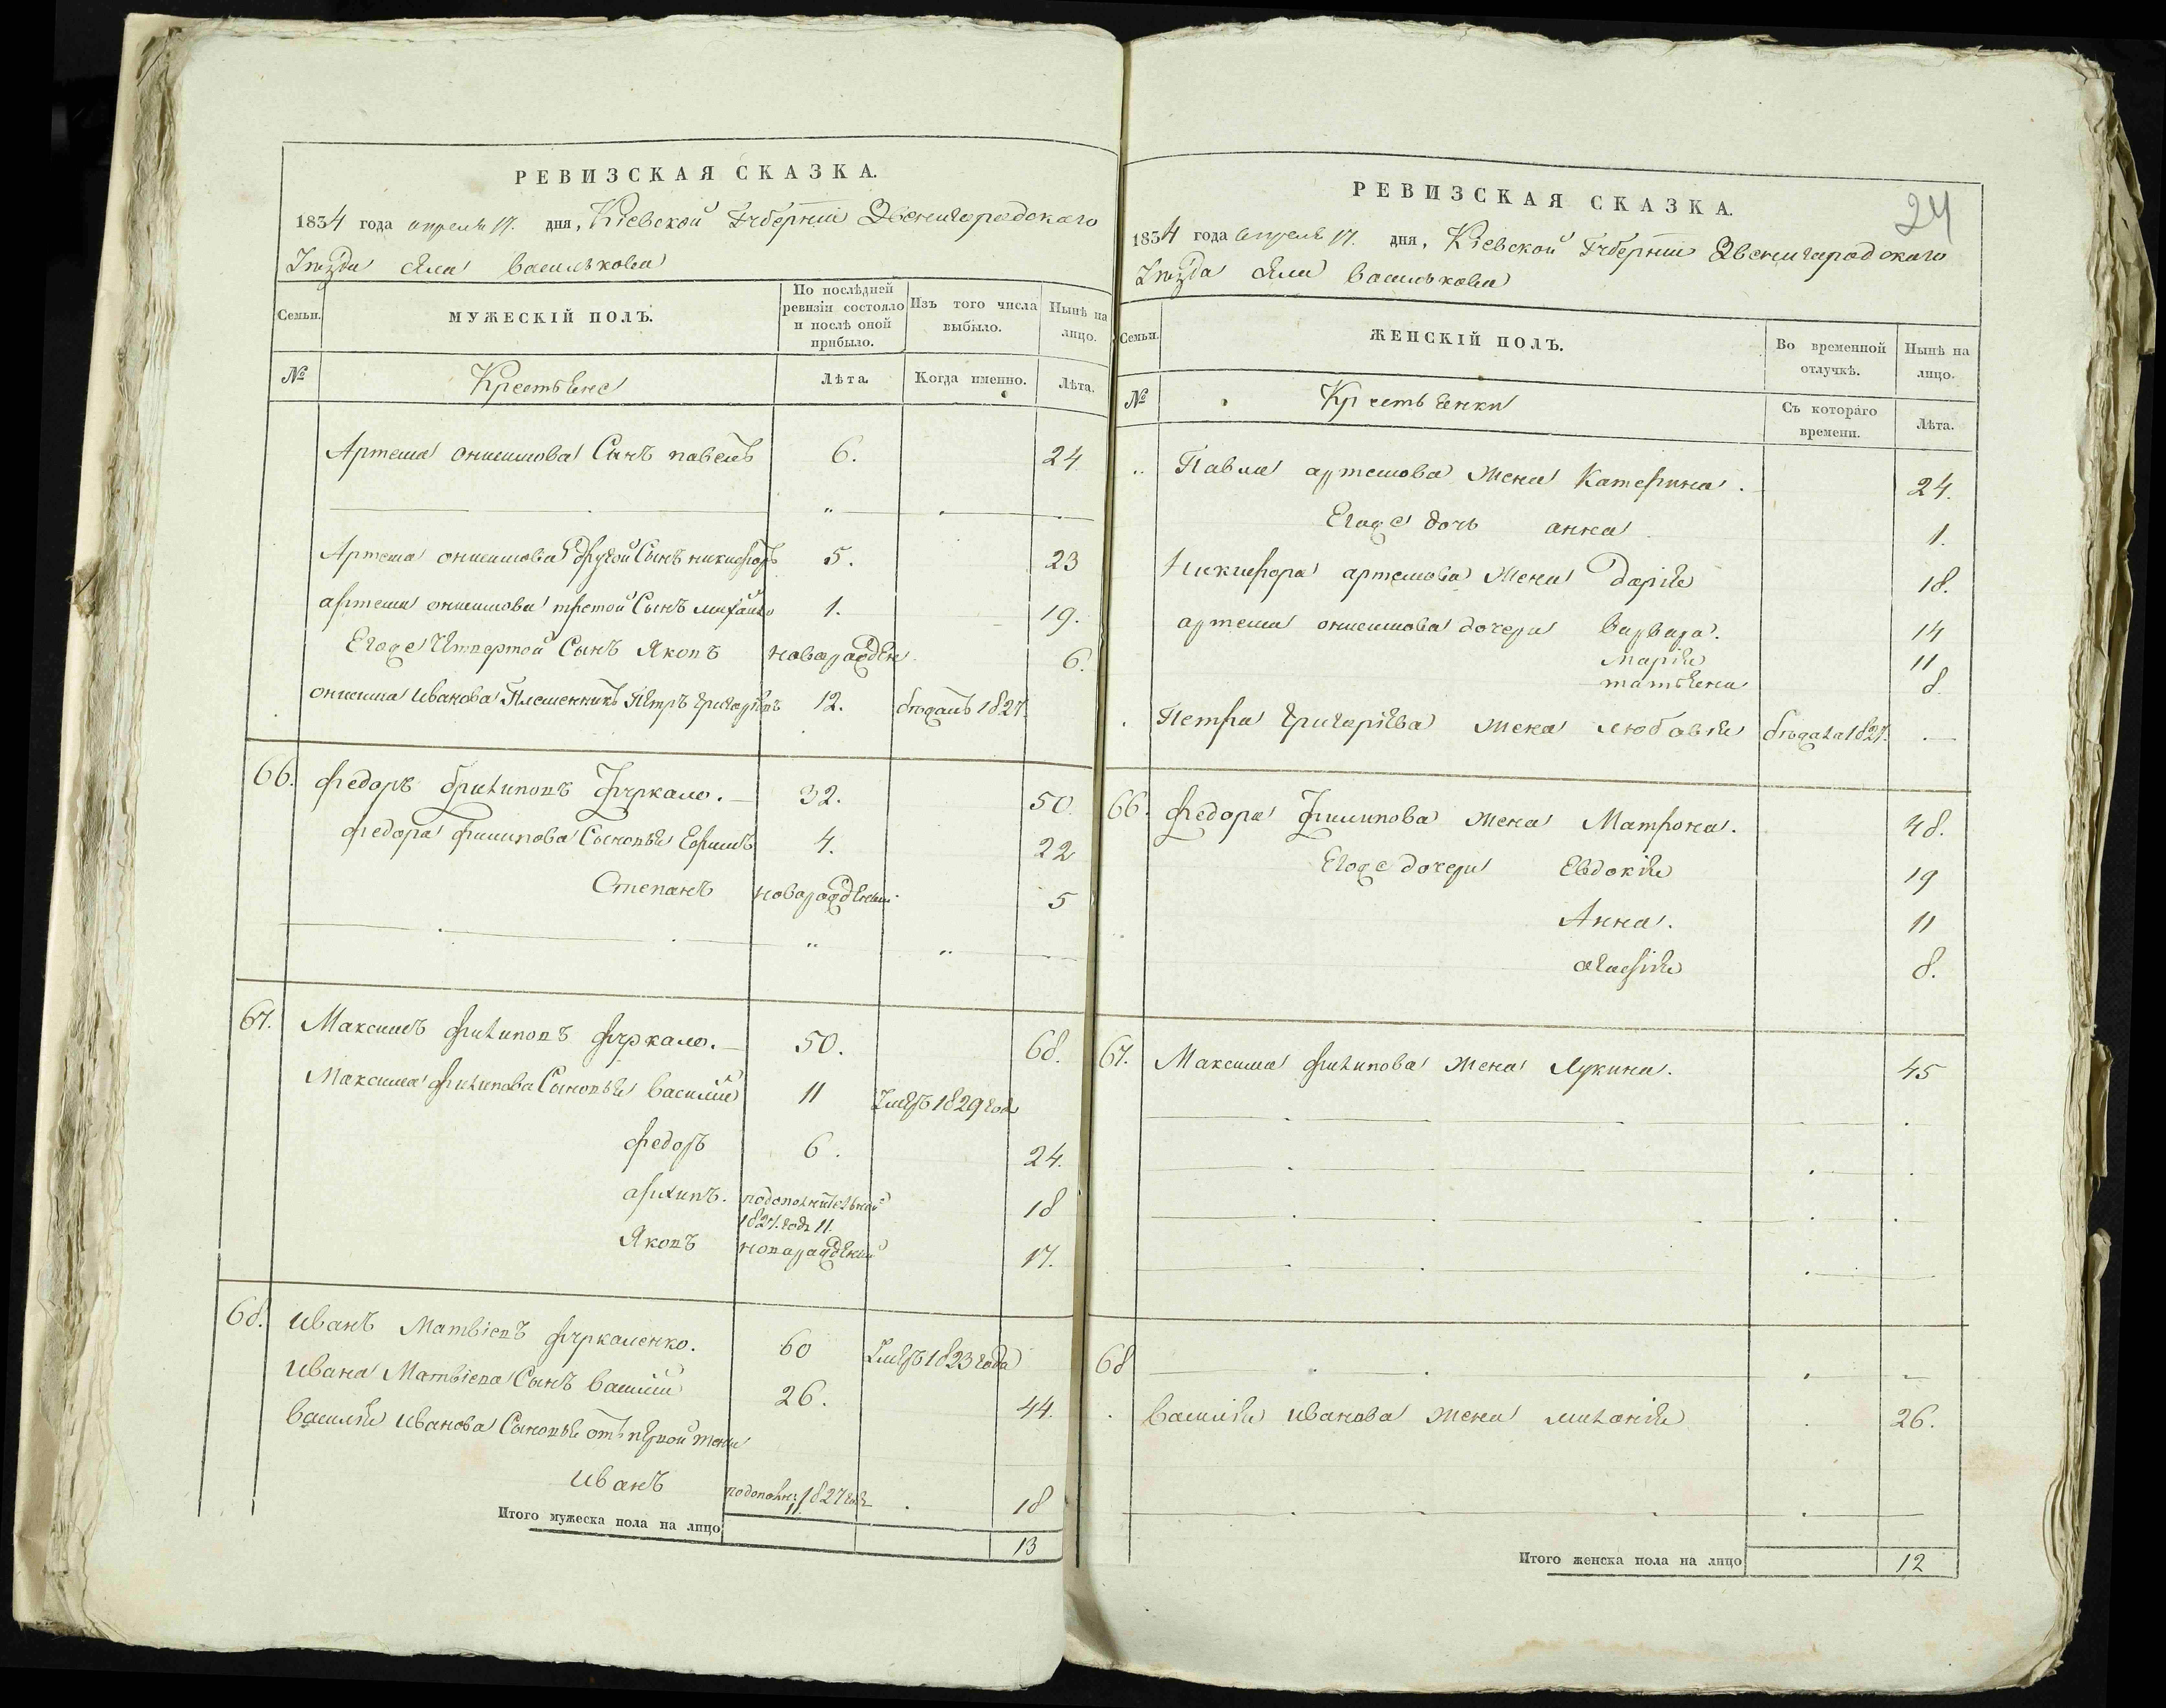 РЕВИЗСКАЯ СКАЗКА.
1834 года апреля 17. дня, Кіевской Губерніи Звенигородского
Уезда Села Василькова
Семьи.
МУЖЕСКІЙ ПОЛЪ.
По послѣдней ревизіи состояло и послѣ оной прибыло.
Изъ того числа выбыло.
Нынѣ на лицо.
№
Крестьяне
Лѣта.
Когда именно.
Лѣта.
Артема онисимова Сынъ павелъ 6. 24
Артема онисимова другой Сынъ никифоръ 5. 23
артема онисимова третой Сынъ михайло 1. 19.
Егоже Четвертой Сынъ Яковъ новарожден 6.
онисима иванова Племенникъ Петръ григорьевъ 12. бежалъ 1827.
66. федоръ филиповъ фуркало. 32. 50.
федора филипова Сыновья Ефимъ 4. 22
Степанъ новарожденый 5
67. Максимъ филиповъ фуркало. 50. 68.
Максима филипова Сыновья василий 11 Умеръ 1829 года
федоръ 6. 24.
архипъ. подополнительной 1827. годе 11. 18
Яковъ новарожденый 17.
68. иванъ Матвіевъ фуркаленко. 60 Умеръ 1823 года
ивана Матвіева Сынъ василий 26. 44.
василия иванова Сыновья отъ первой жены
иванъ подополн: 1827 годе 11. 18
Итого мужеска пола на лицо 13
РЕВИЗСКАЯ СКАЗКА.
24
1834 года апреля 17. дня, Кіевской Губерніи Звенигородского
Уезда Села Василькова
Семьи.
ЖЕНСКІЙ ПОЛЪ.
Во временной отлучкѣ.
Нынѣ на лицо.
№
Крестьянки
Съ котораго времени.
Лѣта.
Павла артемова жена Катерина. 24.
Егоже дочь анна 1.
Никифора артемова жена Дарія 18.
артема онисимова дочери варвара. 14
марія 11
татьяна 8.
Петра григорієва жена любовія бежала 1827.
66. федора филипова жена Матрона. 48.
Егоже дочери Евдокія 19
Анна. 11
8.
67. Максима филипова жена Лукина. 45
68
василия иванова жена миланія 26.
Итого женска пола на лицо 12